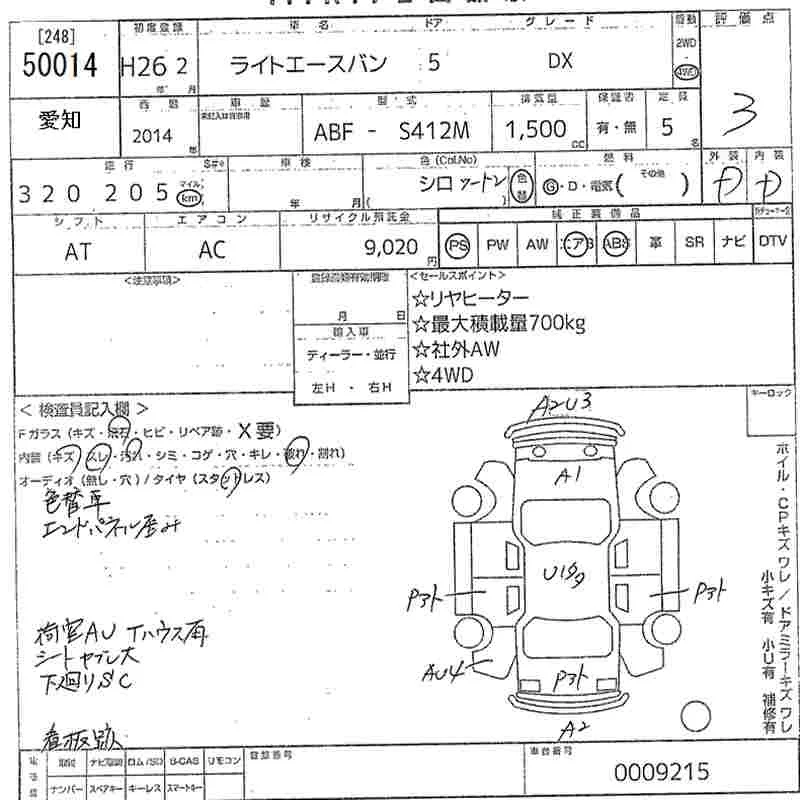 [248]
50014
初度登録
車名
ドア
グレード
駆動
評価点
H26 2
年 月
ライトエースバン
5
DX
2WD
4WD
愛知
西暦
車歴
型式
排気量
保証書
定員
3
2014
年
ABF - S412M
1,500
CC
有・無
5
名
走行
車検
色(Col.No)
燃料
外装
内装
320 205
マイル
km
年 月
シロ ツートン
色替
G・D・電気( その他 )
D D
シフト
エアコン
リサイクル預託金
純正装備品
AT
AC
9,020
円
PS
PW
AW
エアB
ABS
革
SR
ナビ
DTV
<注意事項>
月 日
輸入車
ディーラー・並行
左H ・ 右H
<セールスポイント>
☆リヤヒーター
☆最大積載量700kg
☆社外AW
☆4WD
キーロック
< 検査員記入欄 >
Fガラス (キズ・飛石・ヒビ・リペア跡・X要)
内装 (キズ・スレ・汚れ・シミ・コゲ・穴・キレ・破れ・割れ)
オーディオ (無し・穴) / タイヤ (スタッドレス)
色替車
エンドパネル歪み
荷室AU Tハウス有
シートヤブレ大
下廻りSC
看板跡
A2U3
A1
P3ト
P3ト
AU4
P3ト
A2
ホイル・CPキズワレ/ドアミラーキズワレ
小キズ有 小U有 補修有
取説
ナビ取説
ロム/SD
B-CAS
リモコン
登録番号
車台番号
ナンバー
スペアキー
キーレス
スマートキー
0009215